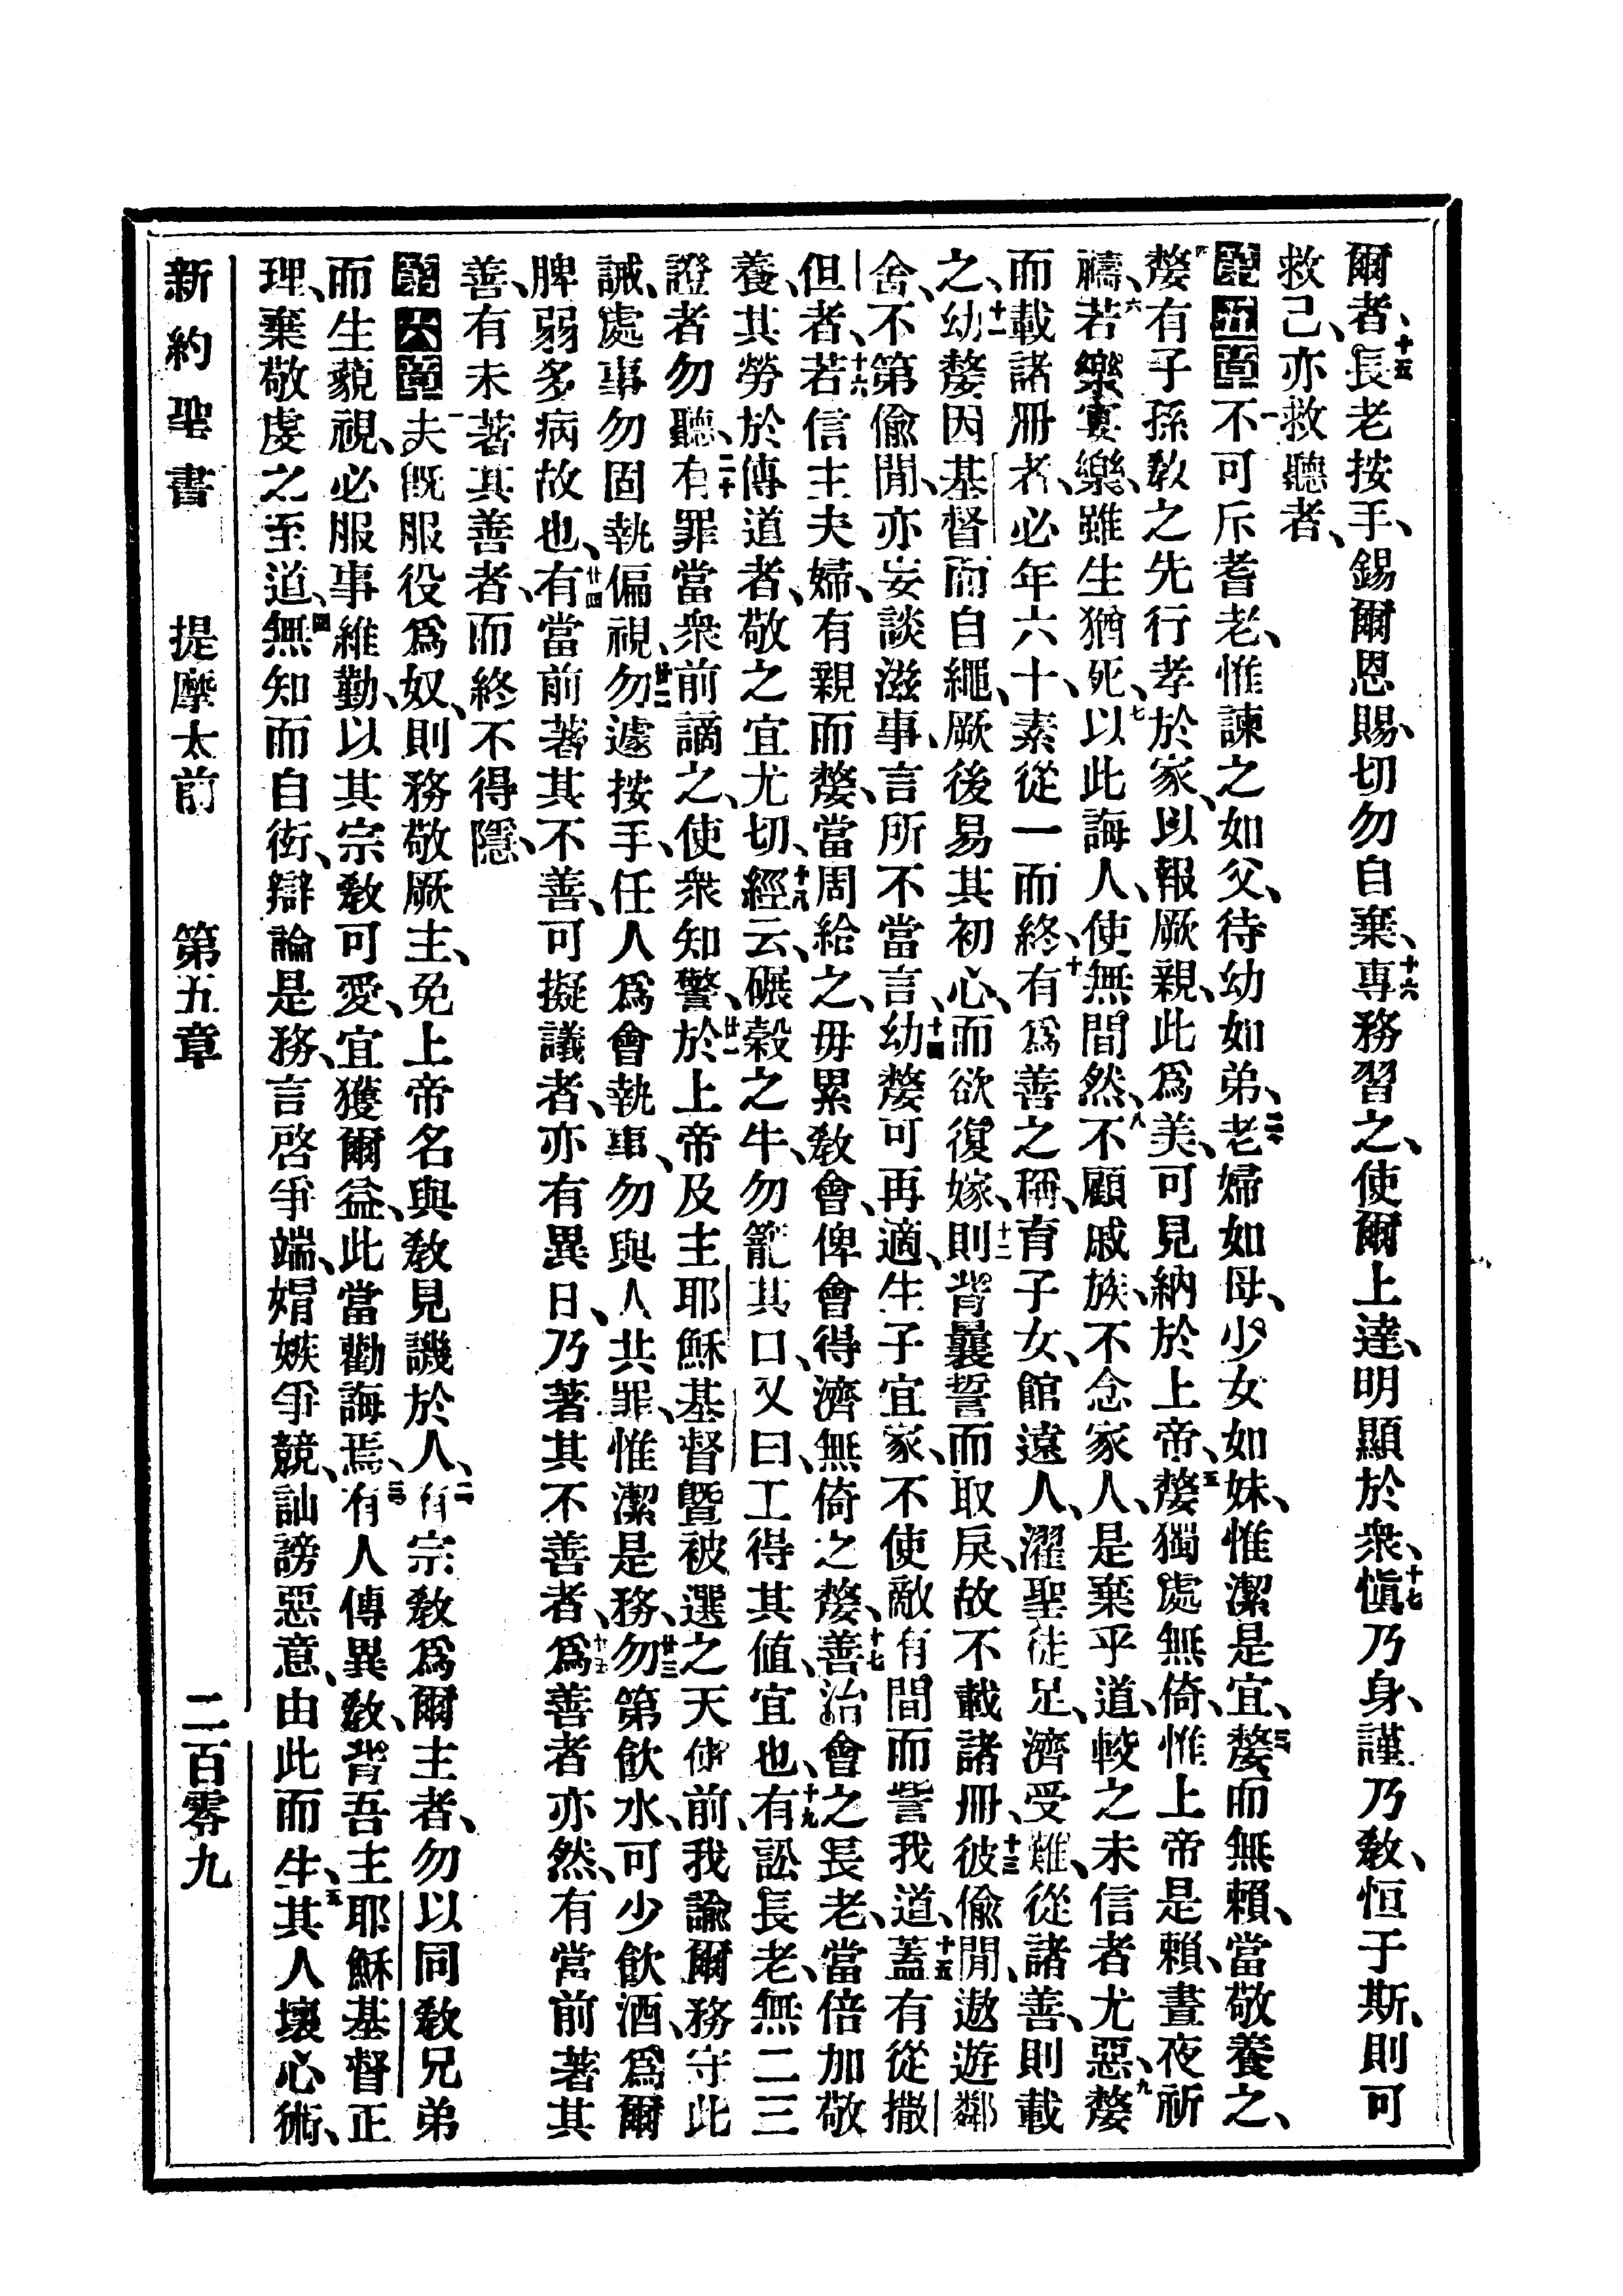 爾者、十五長老按手、錫爾恩賜、切勿自棄、十六專務習之、使爾上達、明顯於衆、十七愼乃身、謹乃敎、恒于斯、則可
救己、亦救聽者、
第五章一不可斥耆老、惟諫之如父、待幼如弟、二老婦如母、少女如妹、惟潔是宜、三嫠而無賴、當敬養之、
四嫠有子孫、敎之先行孝於家、以報厥親、此爲美、可見納於上帝、五嫠獨處無倚、惟上帝是賴、晝夜祈
禱、六若樂宴樂、雖生猶死、七以此誨人、使無間然、八不顧戚族、不念家人、是棄乎道、較之未信者尤惡、九嫠
而載諸冊者、必年六十、素從一而終、十有爲善之稱、育子女、館遠人、濯聖徒足、濟受難、從諸善、則載
之、十一幼嫠因基督而自繩、厥後易其初心、而欲復嫁、十二則背曩誓而取戾、故不載諸冊、十三彼偸閒、遨遊鄰
舍、不第偸閒、亦妄談滋事、言所不當言、十四幼嫠可再適、生子宜家、不使敵有間而訾我道、十五蓋有從撒
但者、十六若信主夫婦、有親而嫠、當周給之、毋累敎會、俾會得濟無倚之嫠、十七善治會之長老、當倍加敬
養、其勞於傳道者、敬之宜尤切、十八經云、碾穀之牛、勿籠其口、又曰、工得其値、宜也、十九有訟長老、無二三
證者勿聽、二十有罪當衆前謫之、使衆知警、廿一於上帝及主耶穌基督曁被選之天使前、我諭爾務守此
誡、處事勿固執偏視、廿二勿遽按手、任人爲會執事、勿與人共罪、惟潔是務、廿三勿第飮水、可少飮酒、爲爾
脾弱多病故也、廿四有當前著其不善、可擬議者、亦有異日、乃著其不善者、廿五爲善者亦然、有當前著其
善、有未著其善者、而終不得隱、
第六章一夫旣服役爲奴、則務敬厥主、免上帝名與敎見譏於人、二有宗敎爲爾主者、勿以同敎兄弟
而生藐視、必服事維勤、以其宗敎可愛、宜獲爾益、此當勸誨焉、三有人傳異敎、背吾主耶穌基督正
理、棄敬虔之至道、四無知而自衒、辯論是務、言啓爭端、媢嫉爭競、訕謗惡意、由此而生、五其人壞心術、
新約聖書　提摩太前　第五章　二百零九